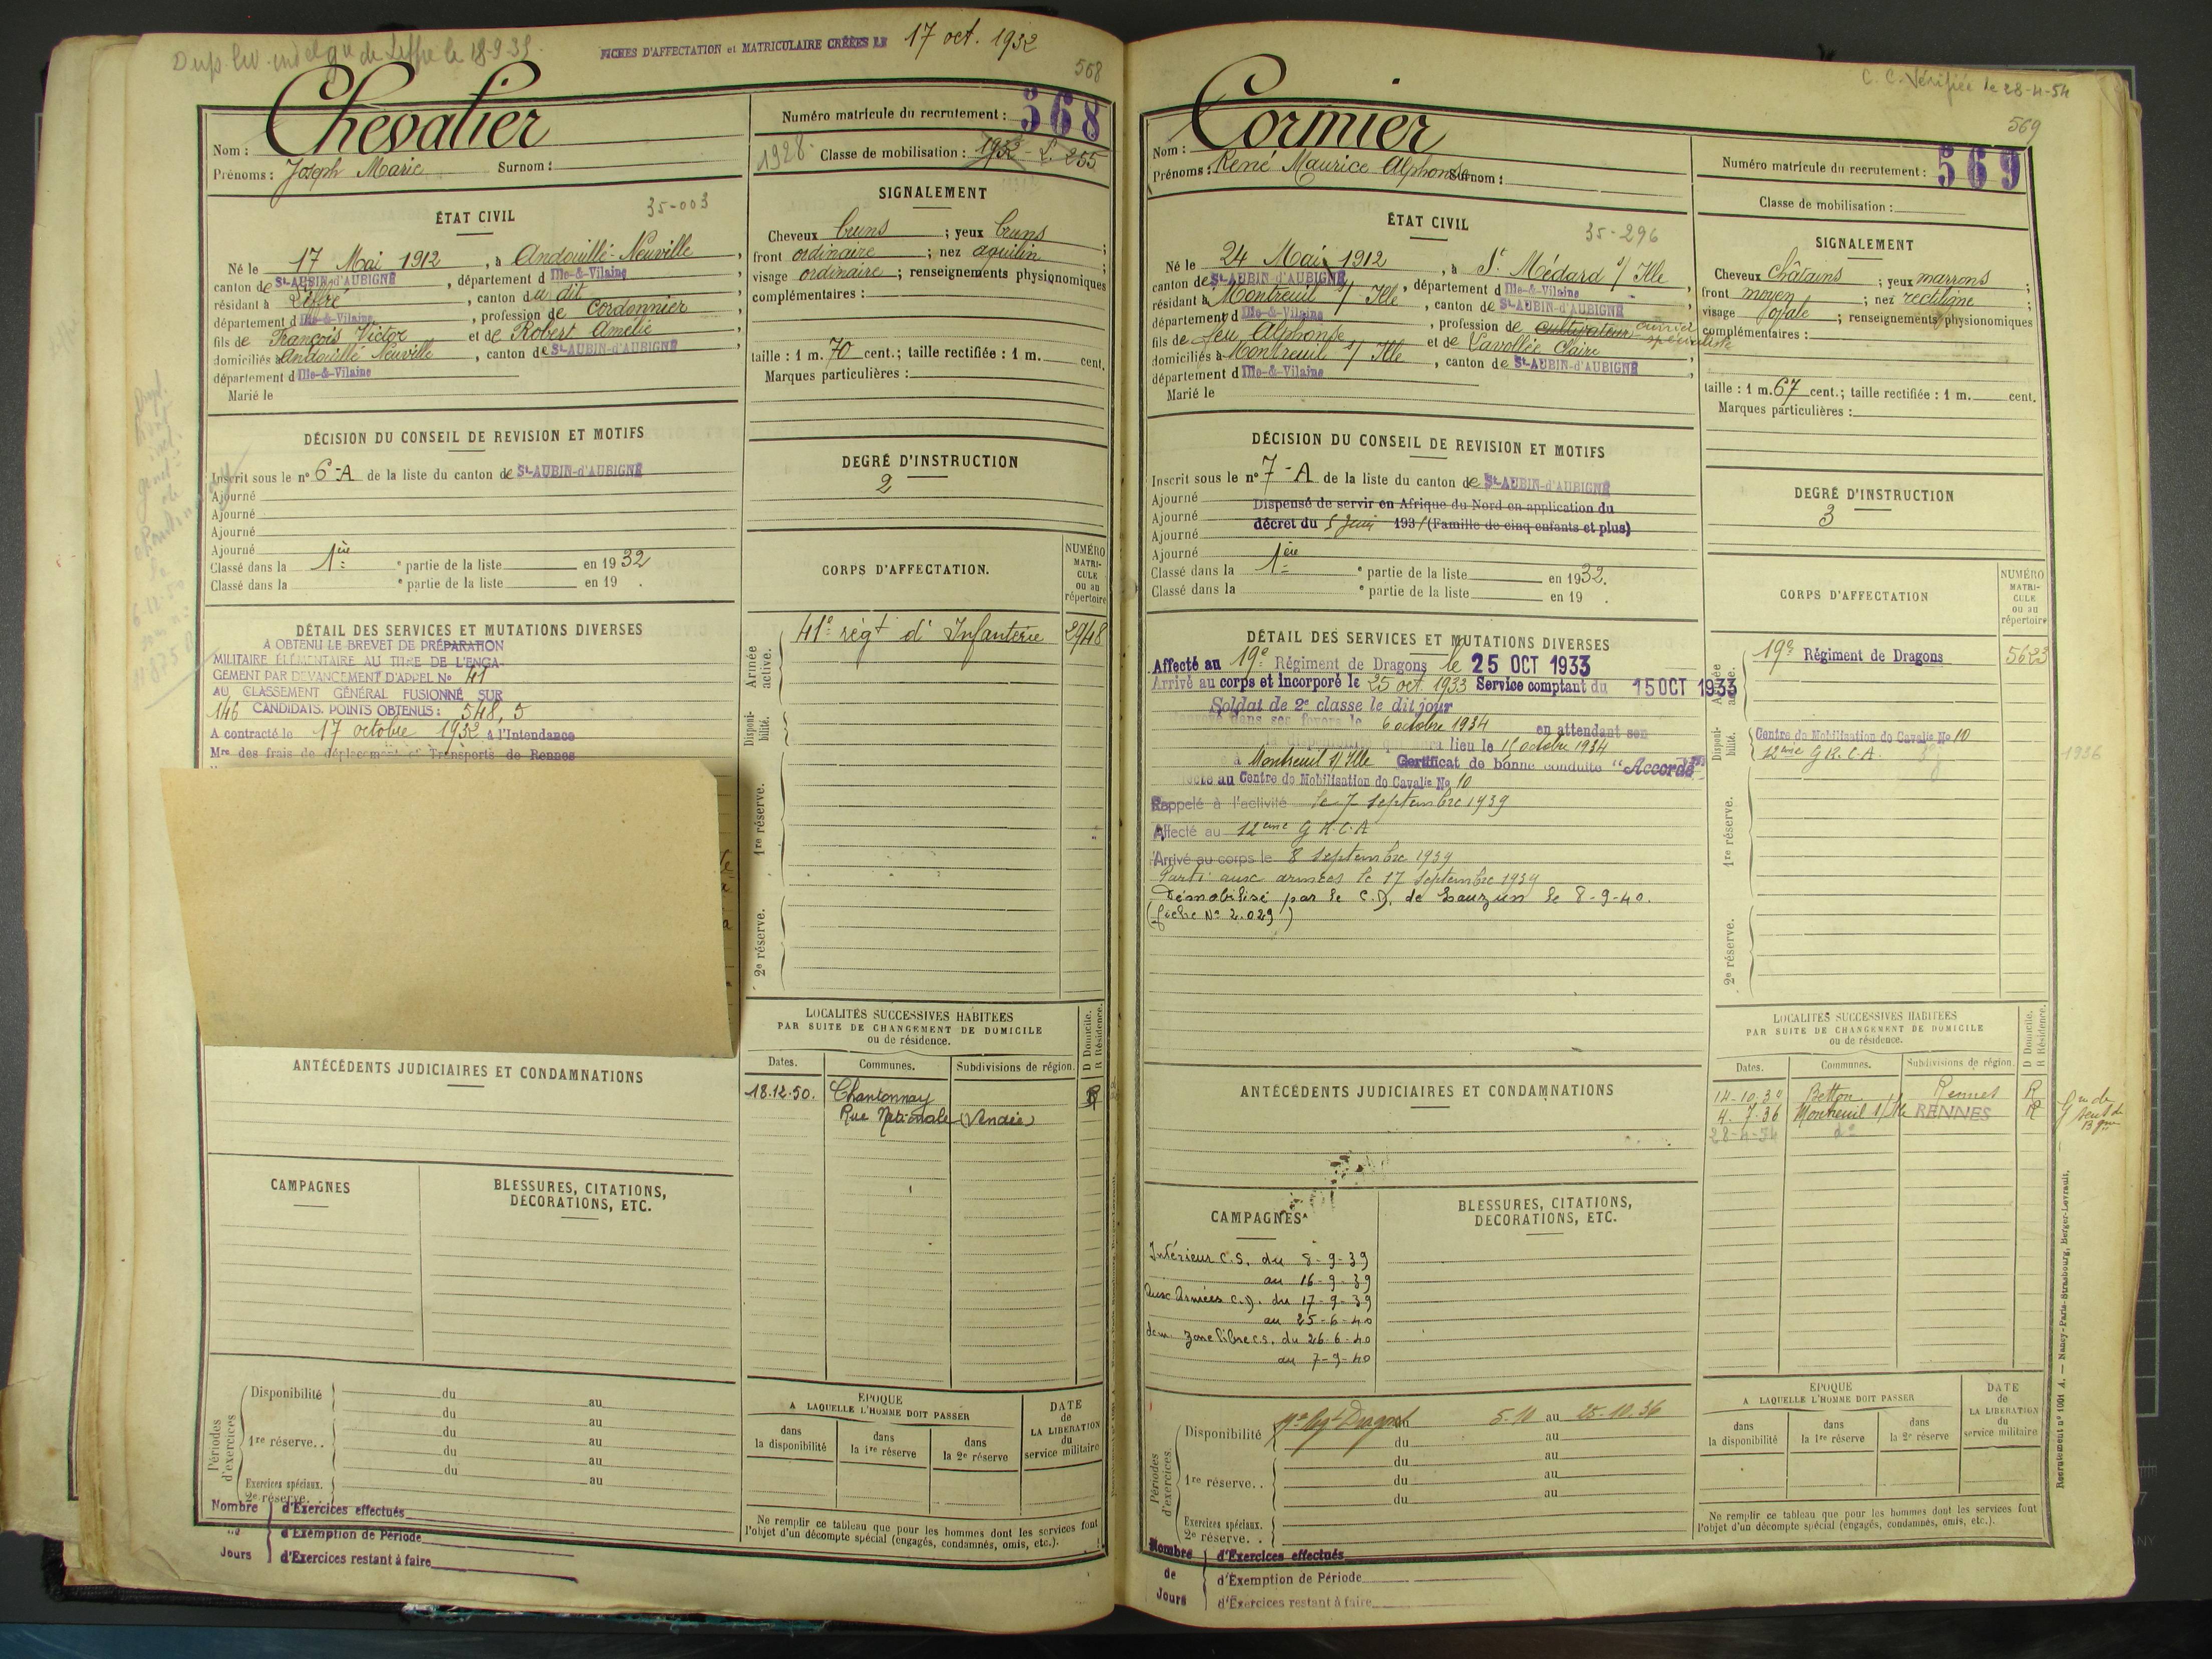 Dup. liv. ind. de Liffré le 18-9-35.
FICHES D'AFFECTATION et MATRICULAIRE CRÉÉES LE 17 oct. 1932
568
Nom : Chevalier
Prénoms : Joseph Marie Surnom :
Numéro matricule du recrutement : 568
1928 Classe de mobilisation : 1932 - L. 255
ÉTAT CIVIL
35-003
Né le 17 Mai 1912, à Andouillé-Neuville,
canton de St-AUBIN-d'AUBIGNÉ, département d Ille-&-Vilaine
résidant à Liffré, canton du dit,
département d Ille-&-Vilaine, profession de Cordonnier,
fils de François Victor et de Robert Amélie
domiciliés à Andouillé Neuville, canton de St-AUBIN-d'AUBIGNÉ,
département d Ille-&-Vilaine
Marié le
SIGNALEMENT
Cheveux bruns ; yeux bruns ;
front ordinaire ; nez aquilin ;
visage ordinaire ; renseignements physionomiques
complémentaires :
taille : 1 m. 70 cent.; taille rectifiée : 1 m. cent.
Marques particulières :
DÉCISION DU CONSEIL DE REVISION ET MOTIFS
Inscrit sous le n° 6-A de la liste du canton de St-AUBIN-d'AUBIGNÉ
Ajourné
Ajourné
Ajourné
Ajourné
Classé dans la 1ère e partie de la liste en 1932
Classé dans la e partie de la liste en 19 .
DEGRÉ D'INSTRUCTION
2
CORPS D'AFFECTATION.
NUMÉRO MATRI-CULE ou au répertoire
Armée active.
41e régt d'Infanterie 2948
Disponi-bilité.
1re réserve.
2e réserve.
DÉTAIL DES SERVICES ET MUTATIONS DIVERSES
A OBTENU LE BREVET DE PRÉPARATION
MILITAIRE ÉLÉMENTAIRE AU TITRE DE L'ENGA-
GEMENT PAR DEVANCEMENT D'APPEL No 41
AU CLASSEMENT GÉNÉRAL FUSIONNÉ SUR
146 CANDIDATS. POINTS OBTENUS : 548,5
A contracté le 17 octobre 1932 à l'Intendance
Mre des frais de déplacement et Transports de Rennes
ANTÉCÉDENTS JUDICIAIRES ET CONDAMNATIONS
LOCALITÉS SUCCESSIVES HABITÉES
PAR SUITE DE CHANGEMENT DE DOMICILE
ou de résidence.
Dates. Communes. Subdivisions de région. D Domicile. R Résidence.
18.12.50. Chantonnay R
Rue Nationale (Vendée)
CAMPAGNES
BLESSURES, CITATIONS,
DÉCORATIONS, ETC.
Périodes d'exercices
Disponibilité du au
du au
1re réserve.. du au
du au
du au
Exercices spéciaux.
2e réserve.
Nombre d'Exercices effectués
d'Exemption de Période
Jours d'Exercices restant à faire
ÉPOQUE
A LAQUELLE L'HOMME DOIT PASSER
dans la disponibilité
dans la 1re réserve
dans la 2e réserve
DATE de LA LIBÉRATION du service militaire
Ne remplir ce tableau que pour les hommes dont les services font
l'objet d'un décompte spécial (engagés, condamnés, omis, etc.).
C. C. Vérifiée le 28-4-54
569
Nom : Cormier
Prénoms : René Maurice Alphonse Surnom :
Numéro matricule du recrutement : 569
Classe de mobilisation :
ÉTAT CIVIL
35-296
Né le 24 Mai 1912, à St Médard s/ Ille,
canton de St-AUBIN d'AUBIGNÉ, département d Ille-&-Vilaine
résidant à Montreuil s/ Ille, canton de St-AUBIN-d'AUBIGNÉ,
département d Ille-&-Vilaine, profession de cultivateur ouvrier spécialiste
fils de feu Alphonse et de Lavollée Claire
domiciliés à Montreuil s/ Ille, canton de St-AUBIN-d'AUBIGNÉ,
département d Ille-&-Vilaine
Marié le
SIGNALEMENT
Cheveux châtains ; yeux marrons ;
front moyen ; nez rectiligne ;
visage ; renseignements physionomiques
complémentaires :
taille : 1 m. 67 cent.; taille rectifiée : 1 m. cent.
Marques particulières :
DÉCISION DU CONSEIL DE REVISION ET MOTIFS
Inscrit sous le n° 7-A de la liste du canton de St-AUBIN-d'AUBIGNÉ
Ajourné Dispensé de servir en Afrique du Nord en application du
Ajourné décret du 5 Juin 1931 (Famille de cinq enfants et plus)
Ajourné
Ajourné
Classé dans la 1ère e partie de la liste en 1932.
Classé dans la e partie de la liste en 19 .
DEGRÉ D'INSTRUCTION
3
CORPS D'AFFECTATION
NUMÉRO MATRI-CULE ou au répertoire
Armée active.
19e Régiment de Dragons 5623
Disponi-bilité.
Centre de Mobilisation de Cavalie No 10
12ème G.R.C.A 1936
1re réserve.
2e réserve.
DÉTAIL DES SERVICES ET MUTATIONS DIVERSES
Affecté au 19e Régiment de Dragons le 25 OCT 1933
Arrivé au corps et incorporé le 25 oct. 1933 Service comptant du 15 OCT 1933
Soldat de 2e classe le dit jour
renvoyé dans ses foyers le 6 octobre 1934 en attendant son
lieu le 15 octobre 1934
à Montreuil s/ Ille Certificat de bonne conduite "Accordé"
au Centre de Mobilisation de Cavalie No 10
Rappelé à l'activité le 7 septembre 1939
Affecté au 12ème G.R.C.A
Arrivé au corps le 8 septembre 1939
Parti aux armées le 17 septembre 1939
Démobilisé par le C.D. de Lauzun le 8-9-40.
(fiche No 2.029)
ANTÉCÉDENTS JUDICIAIRES ET CONDAMNATIONS
LOCALITÉS SUCCESSIVES HABITÉES
PAR SUITE DE CHANGEMENT DE DOMICILE
ou de résidence.
Dates. Communes. Subdivisions de région. D Domicile. R Résidence.
14-10.34 Betton Rennes R
4. 7.36 Montreuil s/ Ille RENNES R
28-4-54 do
CAMPAGNES
Intérieur C.S. du 8-9-39
au 16-9-39
Aux Armées C.D. du 17-9-39
au 25-6-40
dem. zone libre C.S. du 26-6-40
au 7-9-40
BLESSURES, CITATIONS,
DÉCORATIONS, ETC.
Périodes d'exercices.
Disponibilité du 5-10 au 25-10.36
du au
du au
1re réserve.. du au
du au
Exercices spéciaux.
2e réserve..
Nombre d'Exercices effectués
de d'Exemption de Période
Jours d'Exercices restant à faire
ÉPOQUE
A LAQUELLE L'HOMME DOIT PASSER
dans la disponibilité
dans la 1re réserve
dans la 2e réserve
DATE de LA LIBÉRATION du service militaire
Ne remplir ce tableau que pour les hommes dont les services font
l'objet d'un décompte spécial (engagés, condamnés, omis, etc.).
Recrutement n° 1001 A. — Nancy-Paris-Strasbourg, Berger-Levrault.